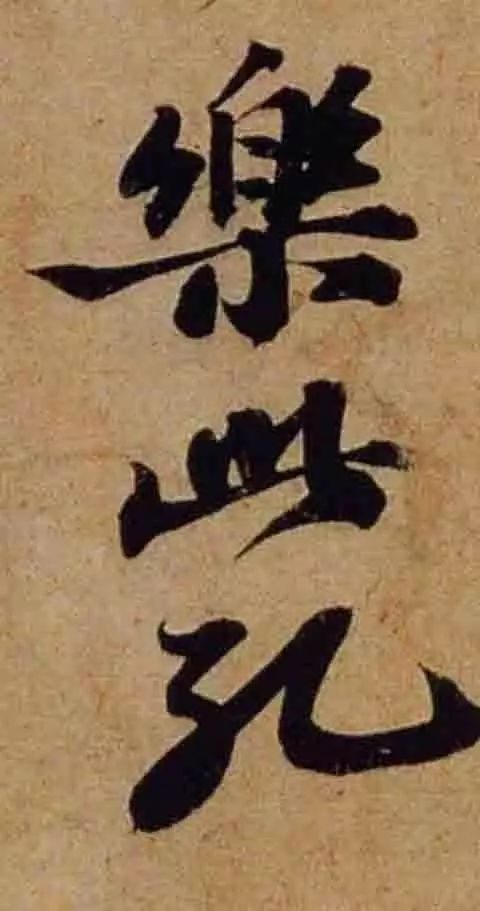 樂此孔